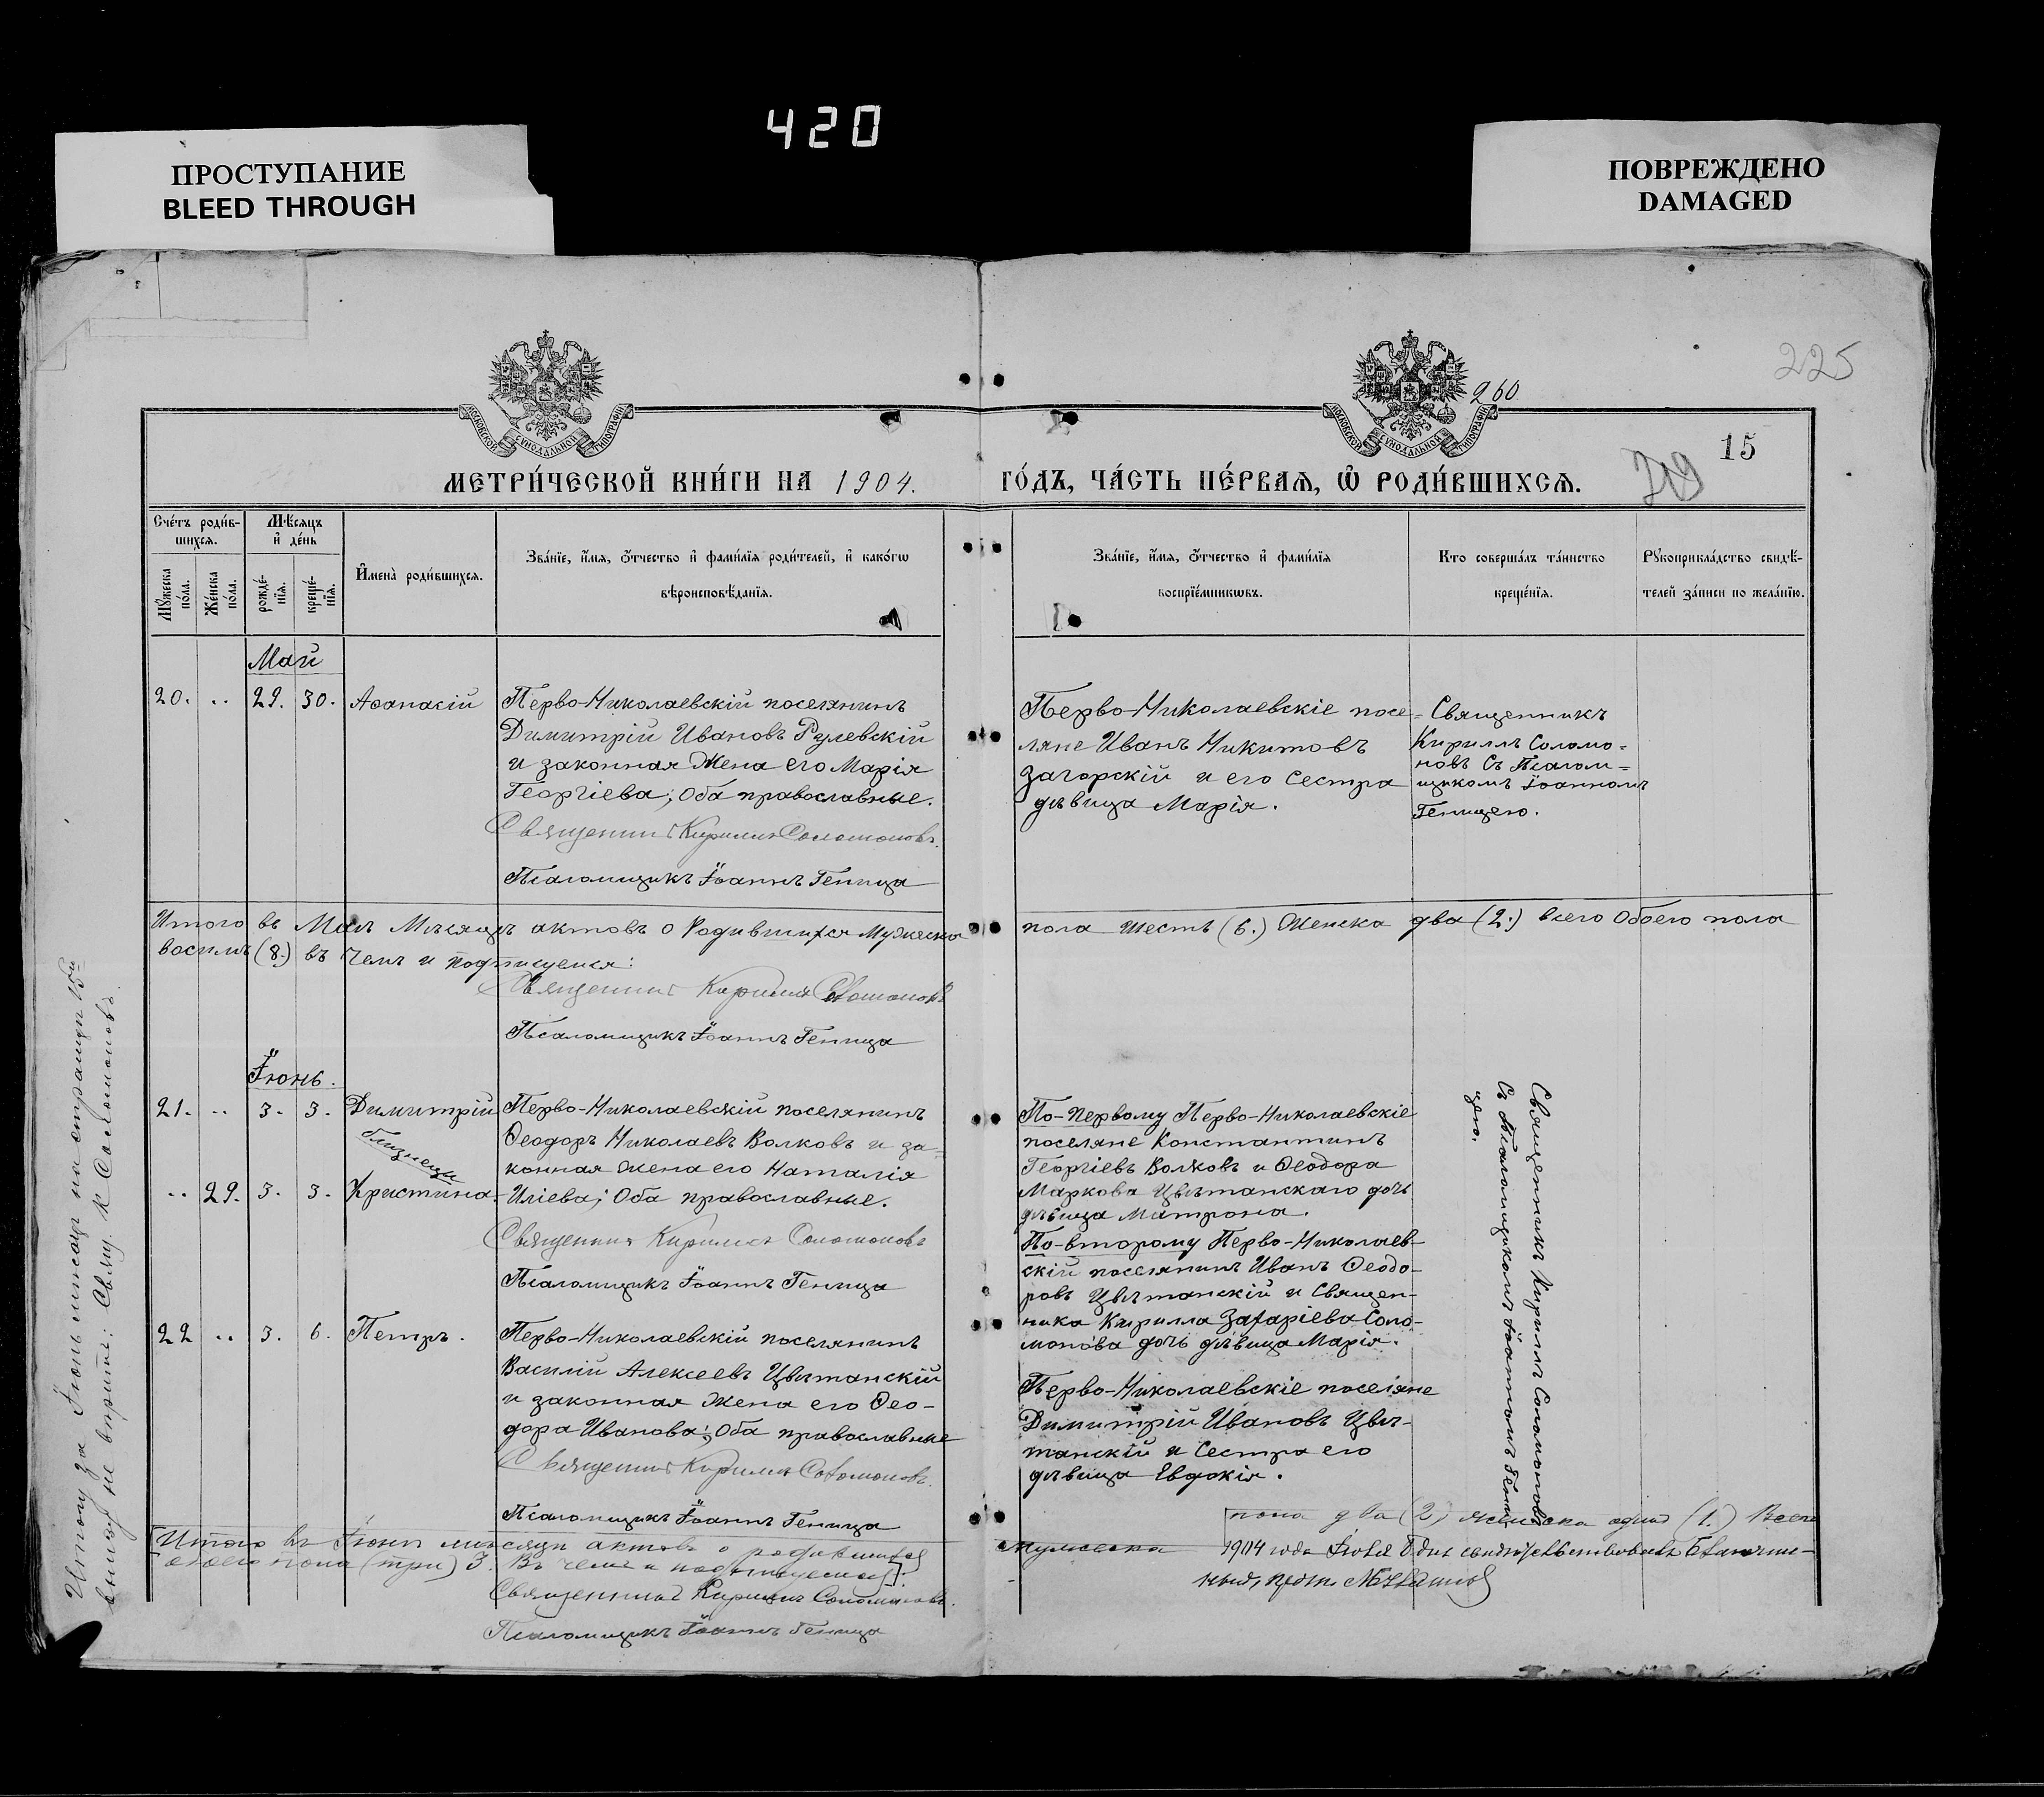 420
ПРОСТУПАНИЕ
BLEED THROUGH
ПОВРЕЖДЕНО
DAMAGED
225
260
15
МОСКОВСКОЙ СУНОДАЛЬНОЙ ТИПОГРАФІИ
МОСКОВСКОЙ СУНОДАЛЬНОЙ ТИПОГРАФІИ
МЕТРИ́ЧЕСКОЙ КНИ́ГИ НА 1904. ГО́ДЪ, ЧА́СТЬ ПЕ́РВАѦ, Ѽ РОДИ́ВШИХСѦ.
Сче́тъ роди́в-
шихсѧ.
Мꙋ́жеска по́ла.
Же́нска по́ла.
Мѣ́сѧцъ
и҆ де́нь
рожде́-
нїѧ.
креще́-
нїѧ.
И҆мена̀ роди́вшихсѧ.
Зва́нїе, и҆́мѧ, ѻ҆́тчество и҆ фами́лїѧ роди́телей, и҆ како́гѡ
вѣроисповѣ́данїѧ.
Зва́нїе, и҆́мѧ, ѻ҆́тчество и҆ фами́лїѧ
воспрїе́мникѡвъ.
Кто соверша́лъ та́инство
креще́нїѧ.
Рꙋкоприкла́дство свидѣ́-
телей за́писи по жела́нїю.
Май
20. .. 29. 30. Аѳанасій
Перво-Николаевскій поселянинъ
Димитрій Ивановъ Рулевскій
и законная Жена его Марія
Георгіева; Оба православные.
Священникъ Кириллъ Соломоновъ.
Псаломщикъ Іоаннъ Геница
Перво-Николаевскіе посе-
ляне Иванъ Никитовъ
Загорскій и его Сестра
дѣвица Марія.
Священникъ
Кириллъ Соломо-
новъ Съ Псалом-
щикомъ Іоанномъ
Геницею.
Итого въ Маѣ Мѣсяцѣ актовъ о Родившихся Мужеска пола шесть (6.) Женска два (2.) всего Обоего пола
восимь (8.) въ чемъ и подписуемся:
Священникъ Кириллъ Соломоновъ
Псаломщикъ Іоаннъ Геница
Іюнь.
21. .. 3. 3. Димитрій
близнецы
.. 29. 3. 3. Христина.
Перво-Николаевскій поселянинъ
Ѳеодоръ Николаевъ Волковъ и за-
конная Жена его Наталія
Иліева; Оба православные.
Священникъ Кириллъ Соломоновъ
Псаломщикъ Іоаннъ Геница
По-первому Перво-Николаевскіе
поселяне Константинъ
Георгіевъ Волковъ и Ѳеодора
Маркова Цвѣтанскаго дочь
дѣвица Матрона.
По-второму Перво-Николаев-
скій поселянинъ Иванъ Ѳеодо-
ровъ Цвѣтанскій и Священ-
ника Кирилла Захаріева Соло-
монова дочь дѣвица Марія.
Священникъ Кириллъ Соломоновъ
Съ Псаломщикомъ Іоанномъ Гени-
цею.
22 .. 3. 6. Петръ.
Перво-Николаевскій поселянинъ
Василій Алексеевъ Цвѣтанскій
и законная Жена его Ѳео-
дора Иванова; Оба православные
Священникъ Кириллъ Соломоновъ.
Псаломщикъ Іоаннъ Геница
Перво-Николаевскіе поселяне
Димитрій Ивановъ Цвѣ-
танскій и Сестра его
дѣвица Евдокія.
[Итого въ Іюнѣ мѣсяцѣ актовъ о родившихся
Мужеска пола два (2) женска одна (1.) Всего
обоего пола (три) 3. Въ чемъ и подписуемся].
Священникъ Кириллъ Соломоновъ.
Псаломщикъ Іоаннъ Геница
1904 года Іюля дня свидѣтельствовалъ Благочин-
ный,
Итогу за Іюнь мѣсяцъ на страницѣ 15й
внизу не вѣрить: Свящ. К Соломоновъ.